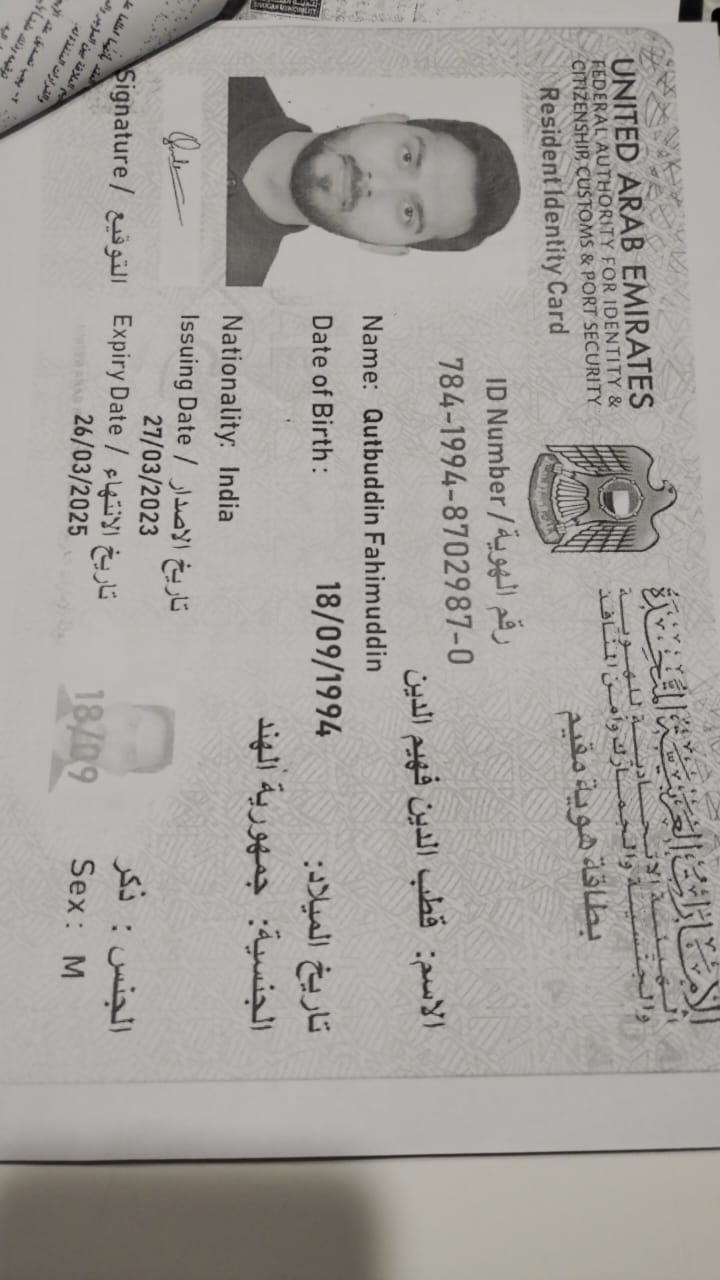 UNITED ARAB EMIRATES
FEDERAL AUTHORITY FOR IDENTITY &
CITIZENSHIP, CUSTOMS & PORT SECURITY
Resident Identity Card
الإمارات العربية المتحدة
الهيئة الاتحادية للهوية
والجنسية والجمارك وأمن المنافذ
بطاقة هوية مقيم
ID Number / رقم الهوية
784-1994-8702987-0
الاسم: قطب الدين فهيم الدين
Name: Qutbuddin Fahimuddin
Date of Birth: 18/09/1994 تاريخ الميلاد:
الجنسية: جمهورية الهند
Nationality: India
Issuing Date / تاريخ الاصدار
27/03/2023
Expiry Date / تاريخ الانتهاء
26/03/2025
18/09
الجنس : ذكر
Sex: M
Signature / التوقيع